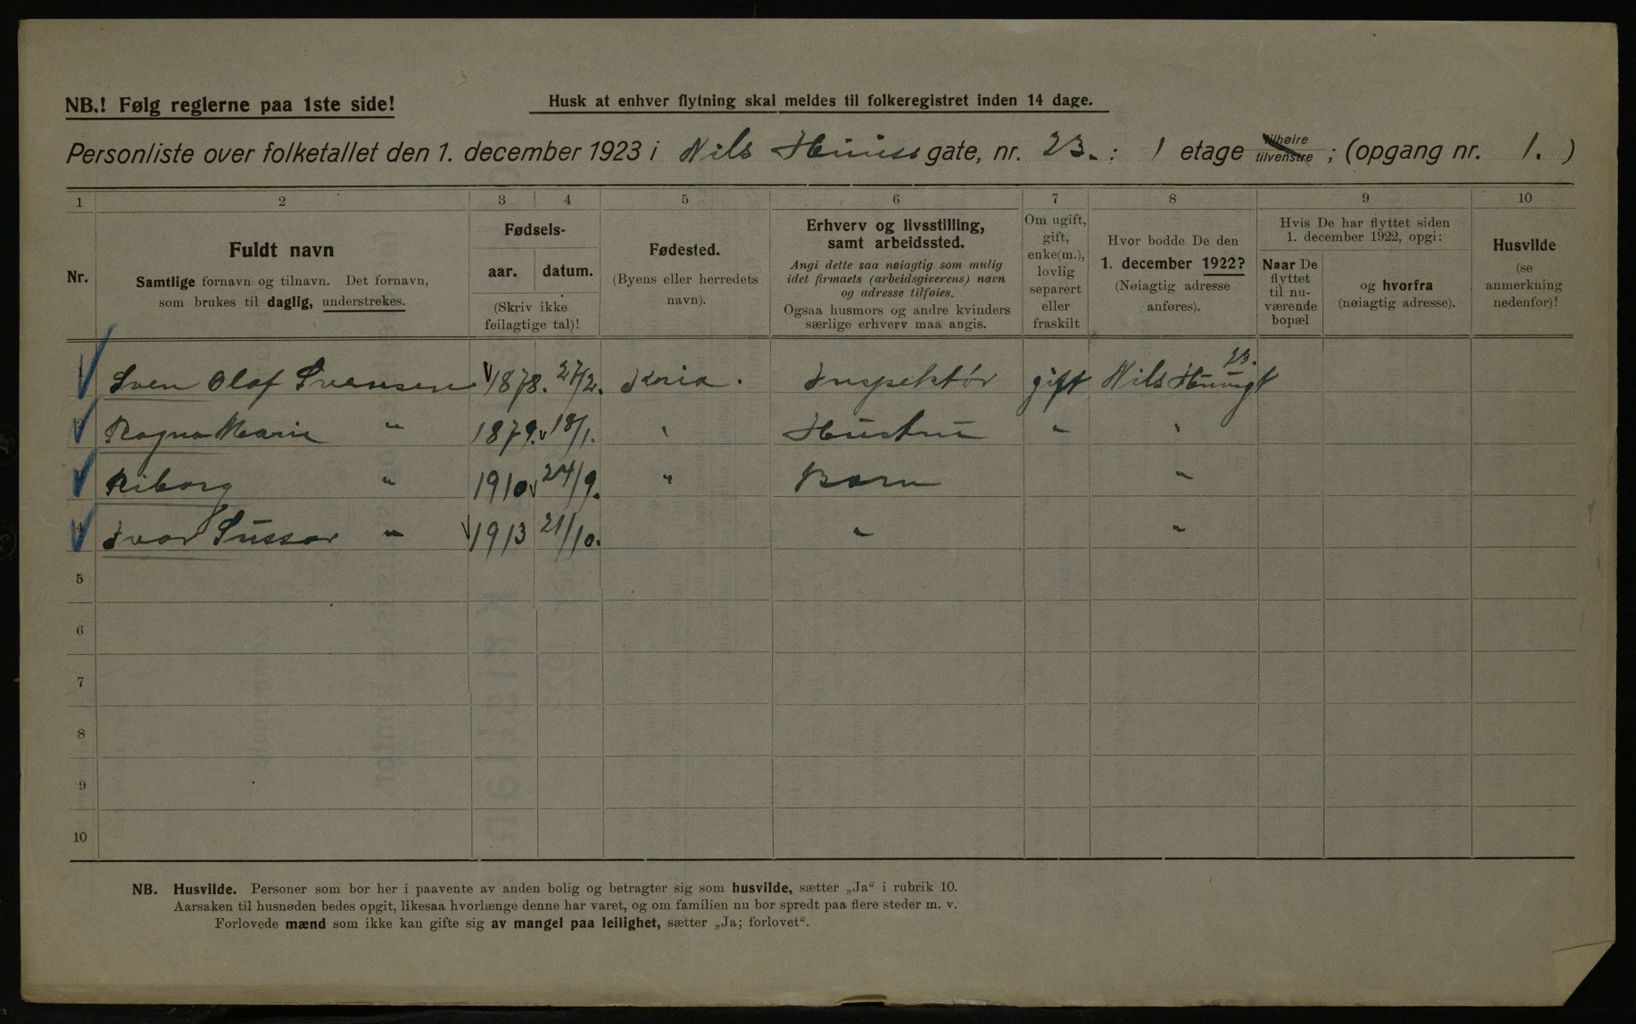 NB.! Følg reglerne paa 1ste side!
Husk at enhver flytning skal meldes til folkeregistret inden 14 dage.
Personliste over folketallet den 1. december 1923 i Nils Huuss gate, nr. 23. : 1 etage tilhøire tilvenstre ; (opgang nr. 1. )
1 2 3 4 5 6 7 8 9 10
Nr.
Fuldt navn
Samtlige fornavn og tilnavn. Det fornavn,
som brukes til daglig, understrekes.
Fødsels-
aar. datum.
(Skriv ikke
feilagtige tal)!
Fødested.
(Byens eller herredets
navn).
Erhverv og livsstilling,
samt arbeidssted.
Angi dette saa nøiagtig som mulig
idet firmaets (arbeidsgiverens) navn
og adresse tilføies.
Ogsaa husmors og andre kvinders
særlige erhverv maa angis.
Om ugift,
gift,
enke(m.),
lovlig
separert
eller
fraskilt
Hvor bodde De den
1. december 1922?
(Nøiagtig adresse
anføres).
Hvis De har flyttet siden
1. december 1922, opgi:
Naar De
flyttet
til nu-
værende
bopæl
og hvorfra
(nøiagtig adresse).
Husvilde
(se
anmerkning
nedenfor)!
Sven Olaf Svensen 1878. 27/2. Kria. Inspektör gift Nils Huusgt 23.
Ragna Marie " 1879. 18/1. " Hustru " "
Riborg " 1910 24/9. " Barn "
Ivar " 1913 21/10. " "
5
6
7
8
9
10
NB. Husvilde. Personer som bor her i paavente av anden bolig og betragter sig som husvilde, sætter „Ja“ i rubrik 10.
Aarsaken til husnøden bedes opgit, likesaa hvorlænge denne har varet, og om familien nu bor spredt paa flere steder m. v.
Forlovede mænd som ikke kan gifte sig av mangel paa leilighet, sætter „Ja; forlovet“.